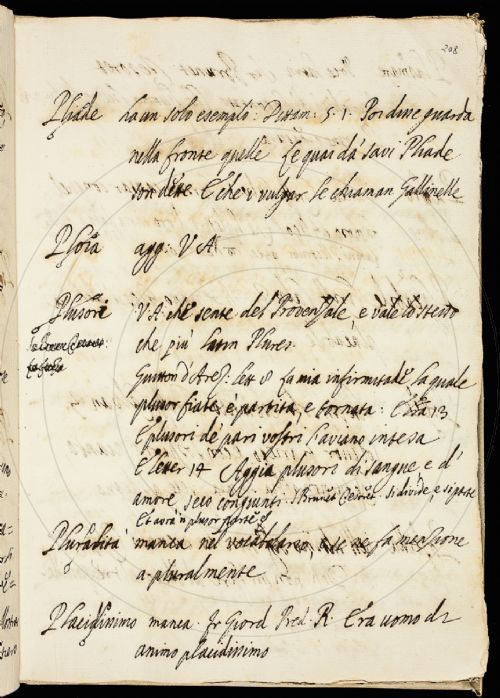 208
Pliade ha un solo esempio: Dittam: 5. 1. Poi dine guarda
nella fronte quelle Le quai da savi Pliade
son dette E che i vulgar le chiaman Gallinelle
agg: V A
Plusori V. A. che sente del Provenzale, e vale lo stesso
che più latin Plures
Guitton d'Arez. Lett 8 la mia infirmitade la quale
plusor fiate è partita, e tornata: 13
E plusori de pari vostri l'aviano intesa
E letter. 14 Aggia plusori di sangue e d'
amore seco congiunti. si divide e si parte
Pluralità manca nel vocabolario ne fa menzione
a pluralmente
Placidissimo manca. Fr Giord Pred. R. Era uomo di
animo placidissimo